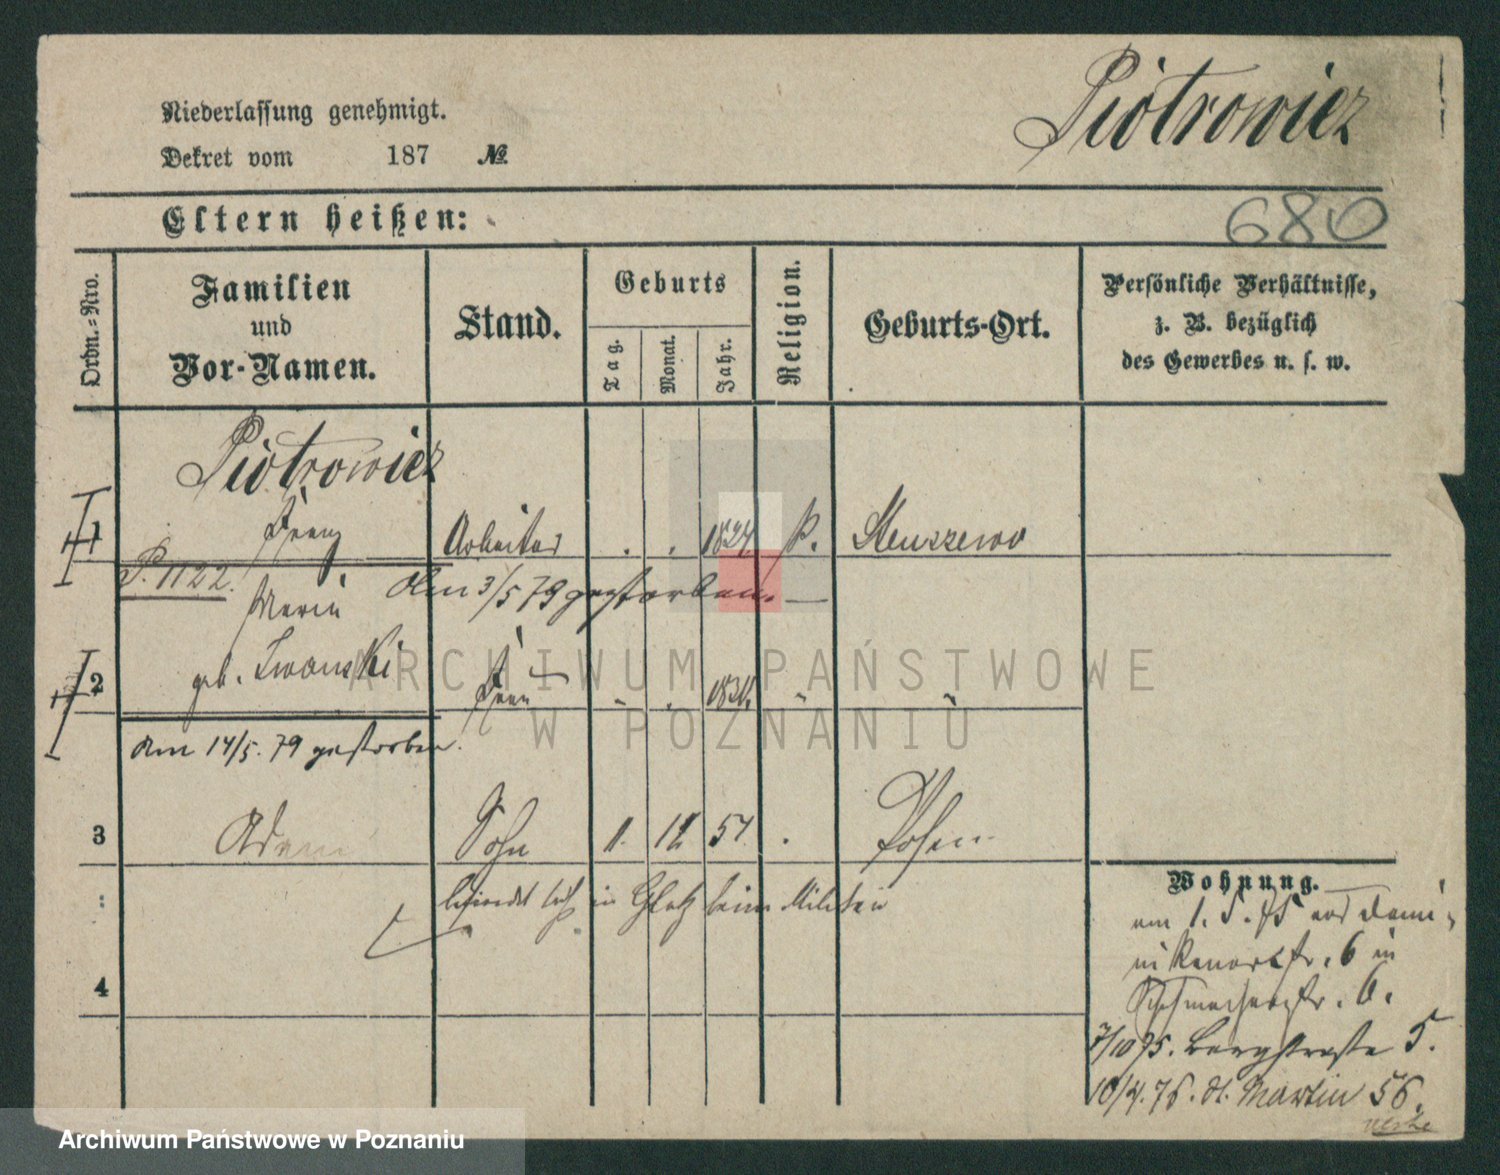 Niederlassung genehmigt.
Dekret vom 187 №
Piotrowicz
Eltern heißen:
680
Ordn.=Nro.
Familien
und
Vor-Namen.
Stand.
Geburts
Tag.
Monat.
Jahr.
Religion.
Geburts-Ort.
Persönliche Verhältnisse,
z. B. bezüglich
des Gewerbes u. s. w.
Piotrowicz
1 Franz Arbeiter . . 1824 k.
P. 1122. Am 3/5 79 gestorben.
Maria
2 geb. Iwanski Frau
am 14/5. 79 gestorben.
3 Adam Sohn 11. 57. Posen
befindet sich in Glatz beim Militair
4
Wohnung.
am 1. 5. 75 von Domi-
nikanerstr. 6 in
Schuhmacherstr. 6.
7/10 75. Bergstrasse 5.
10/4. 76. St. Martin 56.
ARCHIWUM PAŃSTWOWE
W POZNANIU
Archiwum Państwowe w Poznaniu